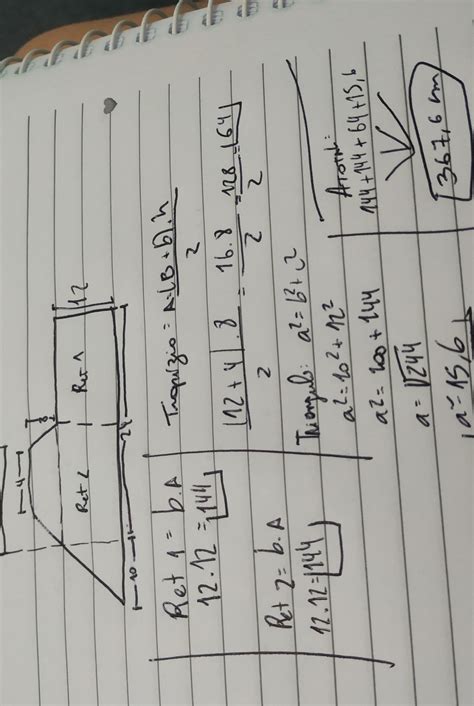 4
8
12
Ret 2
Ret 1
10
24
Ret 1 = b.A
12.12 = 144
Ret 2 = b.A
12.12 = 144
Trapézio = A = (B + b).h
2
(12 + 4).8 = 16.8 = 128 = 64
2 2 2
Triangulo: a² = b² + c²
a² = 10² + 12²
a² = 100 + 144
a = √244
a ≈ 15,6
A total:
144 + 144 + 64 + 15,6
367,6 cm